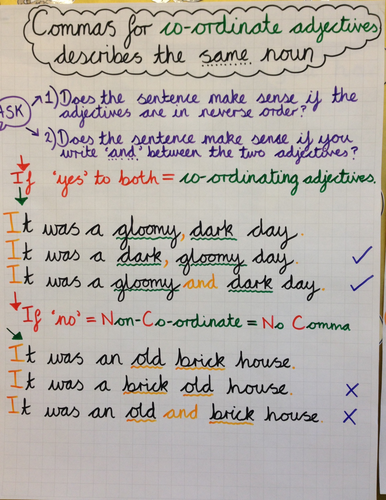 Commas for co-ordinate adjectives
describes the same noun
ASK
1) Does the sentence make sense if the
adjectives are in reverse order?
2) Does the sentence make sense if you
write 'and' between the two adjectives?
If 'yes' to both = co-ordinating adjectives.
It was a gloomy, dark day.
It was a dark, gloomy day. ✓
It was a gloomy and dark day. ✓
If 'no' = Non-Co-ordinate = No Comma
It was an old brick house.
It was a brick old house. X
It was an old and brick house. X